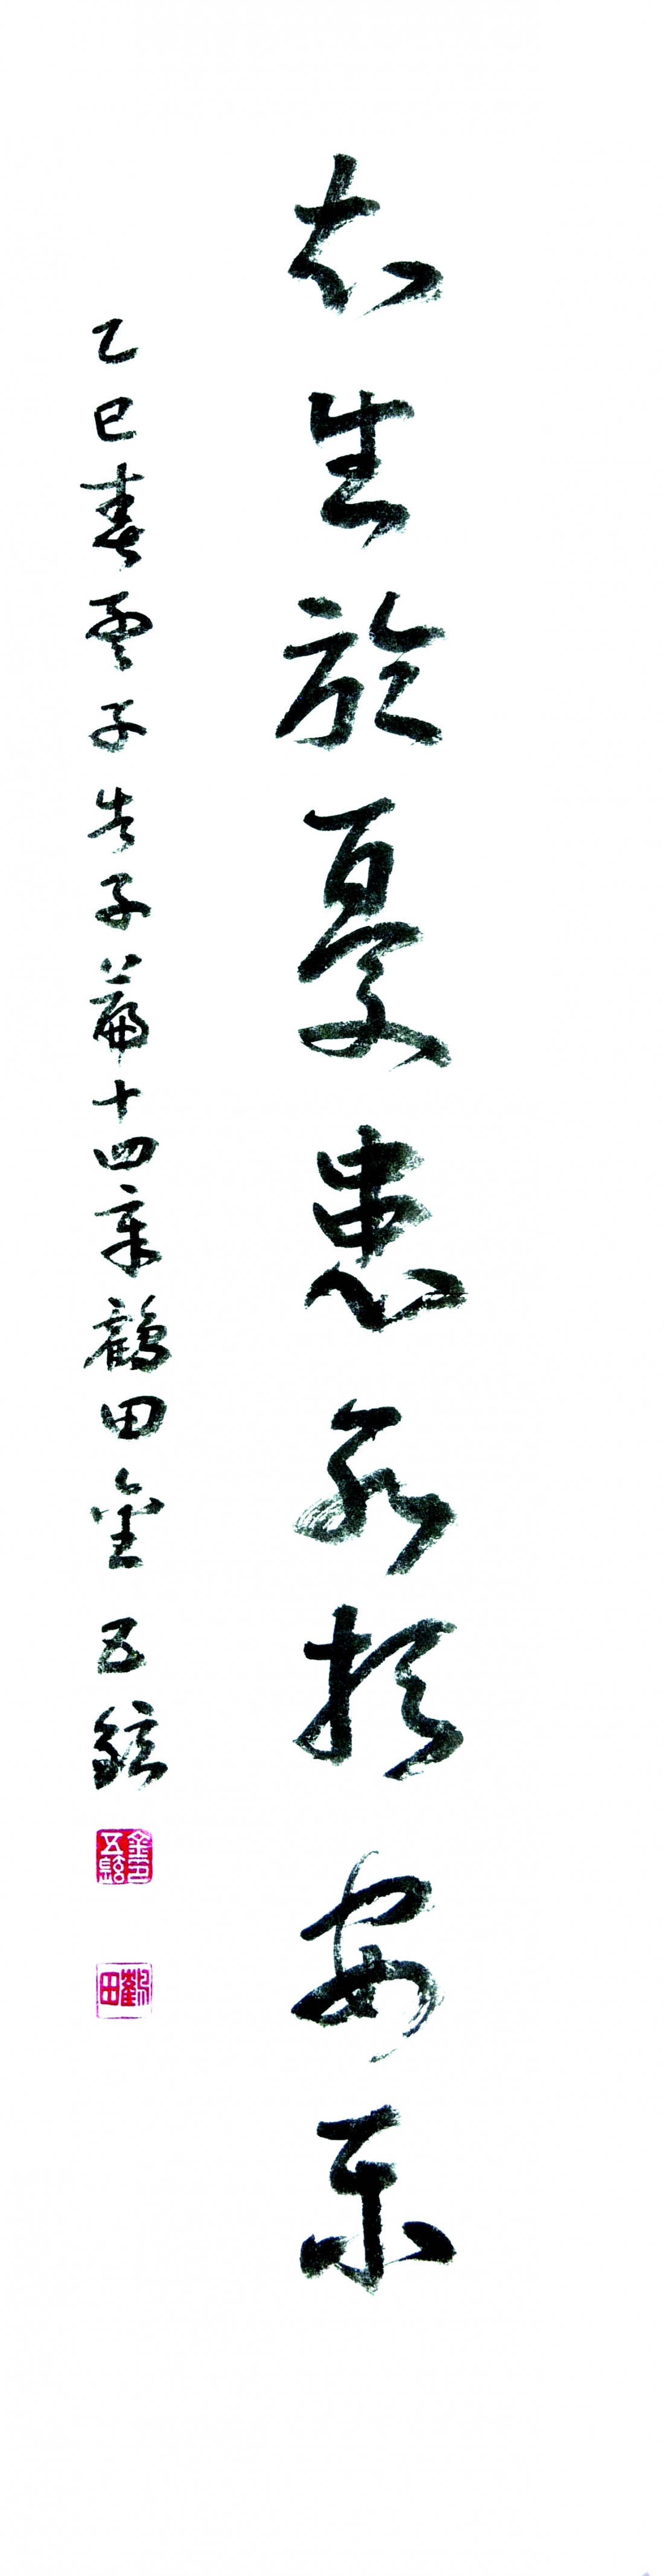 知生於憂患死於安樂
乙巳春孟子告子篇十四章鶴田金五鉉